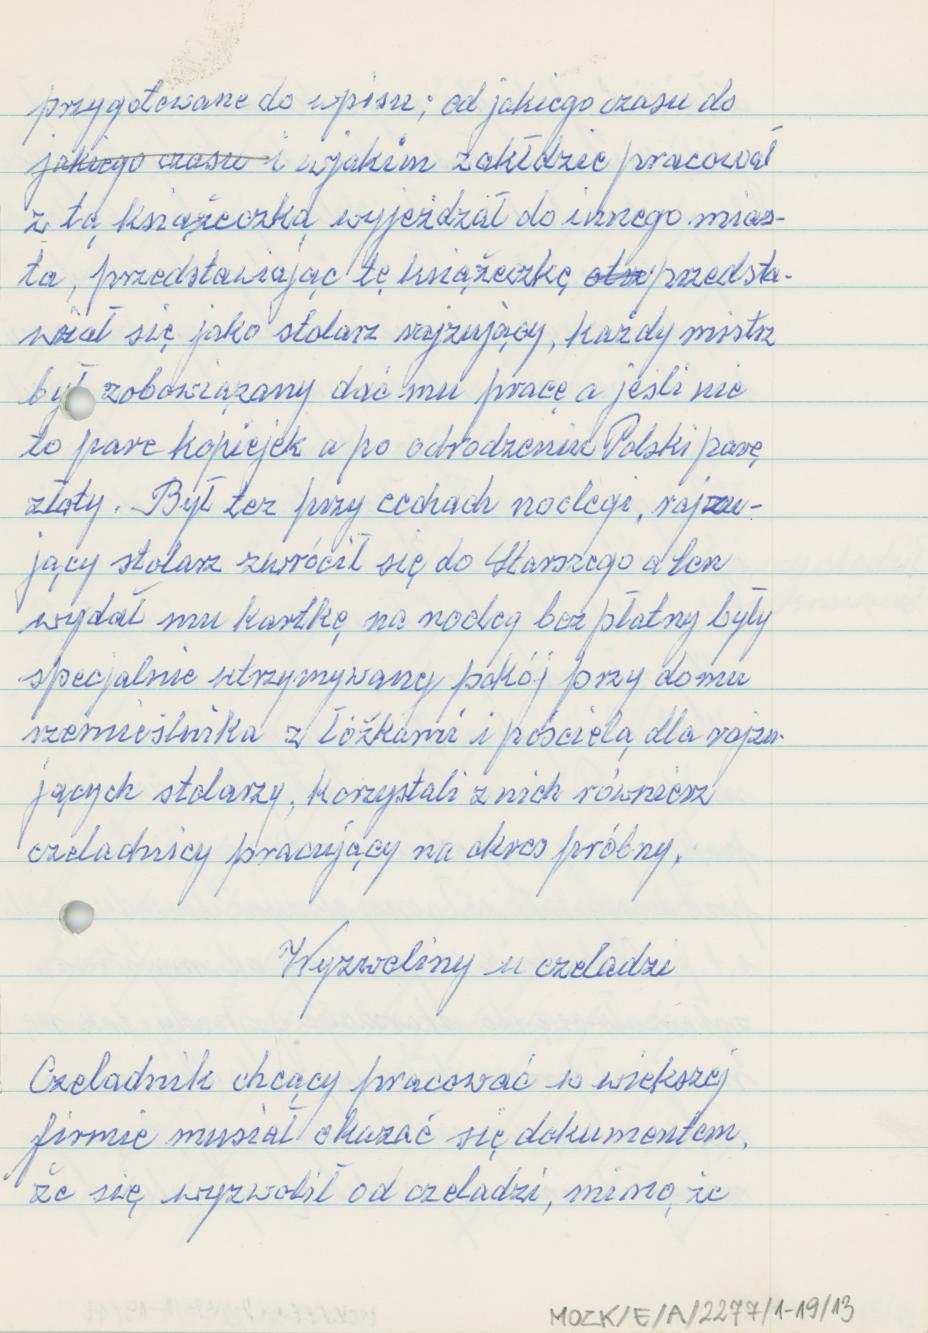 przygotowane do wpisu; od jakiego czasu do
jakiego czasu i wjakim zakłdzie pracował
z tą książeczką wyjeżdżał do innego mias-
ta, przedstawiając tę książeczkę otrz przedsta-
wiał się jako stolarz rajzujący, każdy mistrz
był zobowiązany dać mu pracę a jeśli nie
to pare kopiejek a po odrodzeniu Polski parę
złoty. Był tez przy cechach noclegi, rajzu-
jący stolarz zwrócił się do Starszego a ten
wydał mu kartkę na nocleg bez płatny były
specjalnie utrzymywany pokój przy domu
rzemieślnika z łóżkami i pościelą dla rajzu-
jących stolarzy, korzystali z nich równiesz
czeladnicy pracujący na okres próbny.
Wyzwoliny u czeladzi
Czeladnik chcący pracować w większej
firmie musiał okazać się dokumentem,
że się wyzwolił od czeladzi, mimo, że
MOZK/E/A/2277/1-19/13